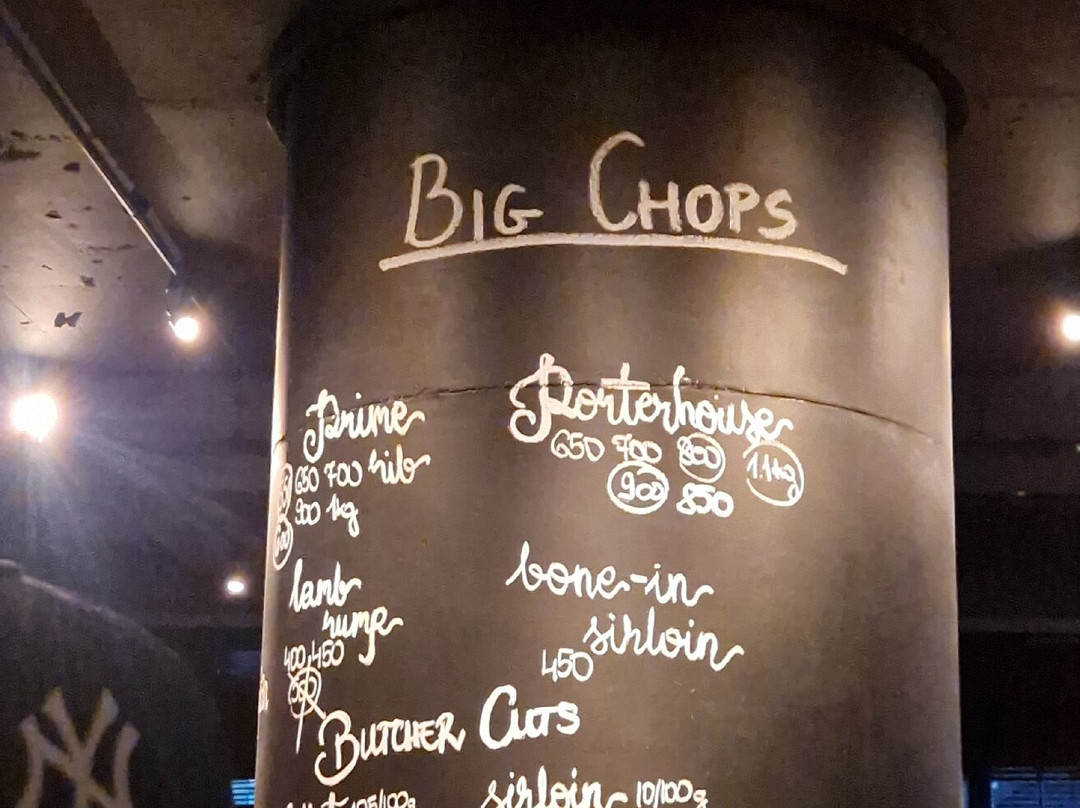 BIG CHOPS
Prime
rib
650 700
900 1kg
Porterhouse
650 700 800 1.1kg
900 850
lamb
rump
400,450
bone-in
sirloin
450
BUTCHER CUTS
sirloin 10/100g
NY